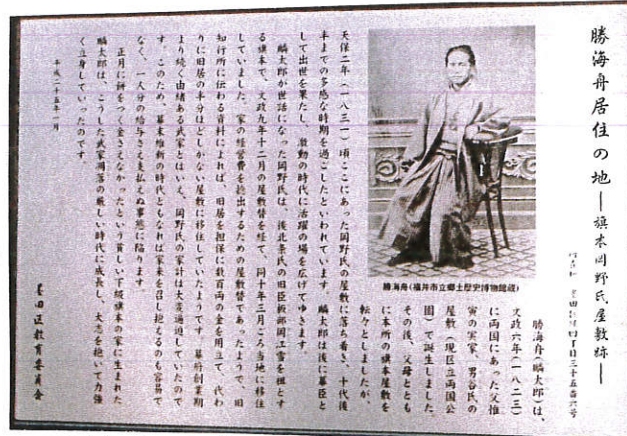 勝海舟居住の地 ―旗本岡野氏屋敷跡―
所在地 墨田区緑四丁目三十五番六号
勝海舟(麟太郎)は、
文政六年(一八二三)
に両国にあった父惟
寅の実家、男谷氏の
屋敷(現区立両国公
園)で誕生しました。
その後、父母ととも
に本所の旗本屋敷を
転々としましたが、
勝海舟(福井市立郷土歴史博物館蔵)
天保二年(一八三一)頃、ここにあった岡野氏の屋敷に落ち着き、十代後
半までの多感な時期を過ごしたといわれています。麟太郎は後に幕臣と
して出世を果たし、激動の時代に活躍の場を広げてゆきます。
麟太郎が世話になった岡野氏は、後北条氏の旧臣板部岡江雪を祖とす
る旗本で、文政九年十二月の屋敷替を経て、同十年三月ごろ当地に移住
していました。家の経営費を捻出するための屋敷替であったようで、旧
知行所に伝わる資料によれば、旧居を担保に数百両の金を用立て、代わ
りに旧居の半分ほどしかない屋敷に移住していたようです。幕府創業期
より続く由緒ある武家とはいえ、岡野氏の家計は大変逼迫していたので
す。このため、幕末維新の時代ともなれば家来を召し抱えるのも容易で
なく、一人分の給与さえも払えぬ事態に陥ります。
正月に餅をつく金さえなかったという貧しい下級旗本の家に生まれた
麟太郎は、こうした武家凋落の厳しい時代に成長し、大志を抱いて力強
く立身していったのです。
平成二十五年一月
墨田区教育委員会